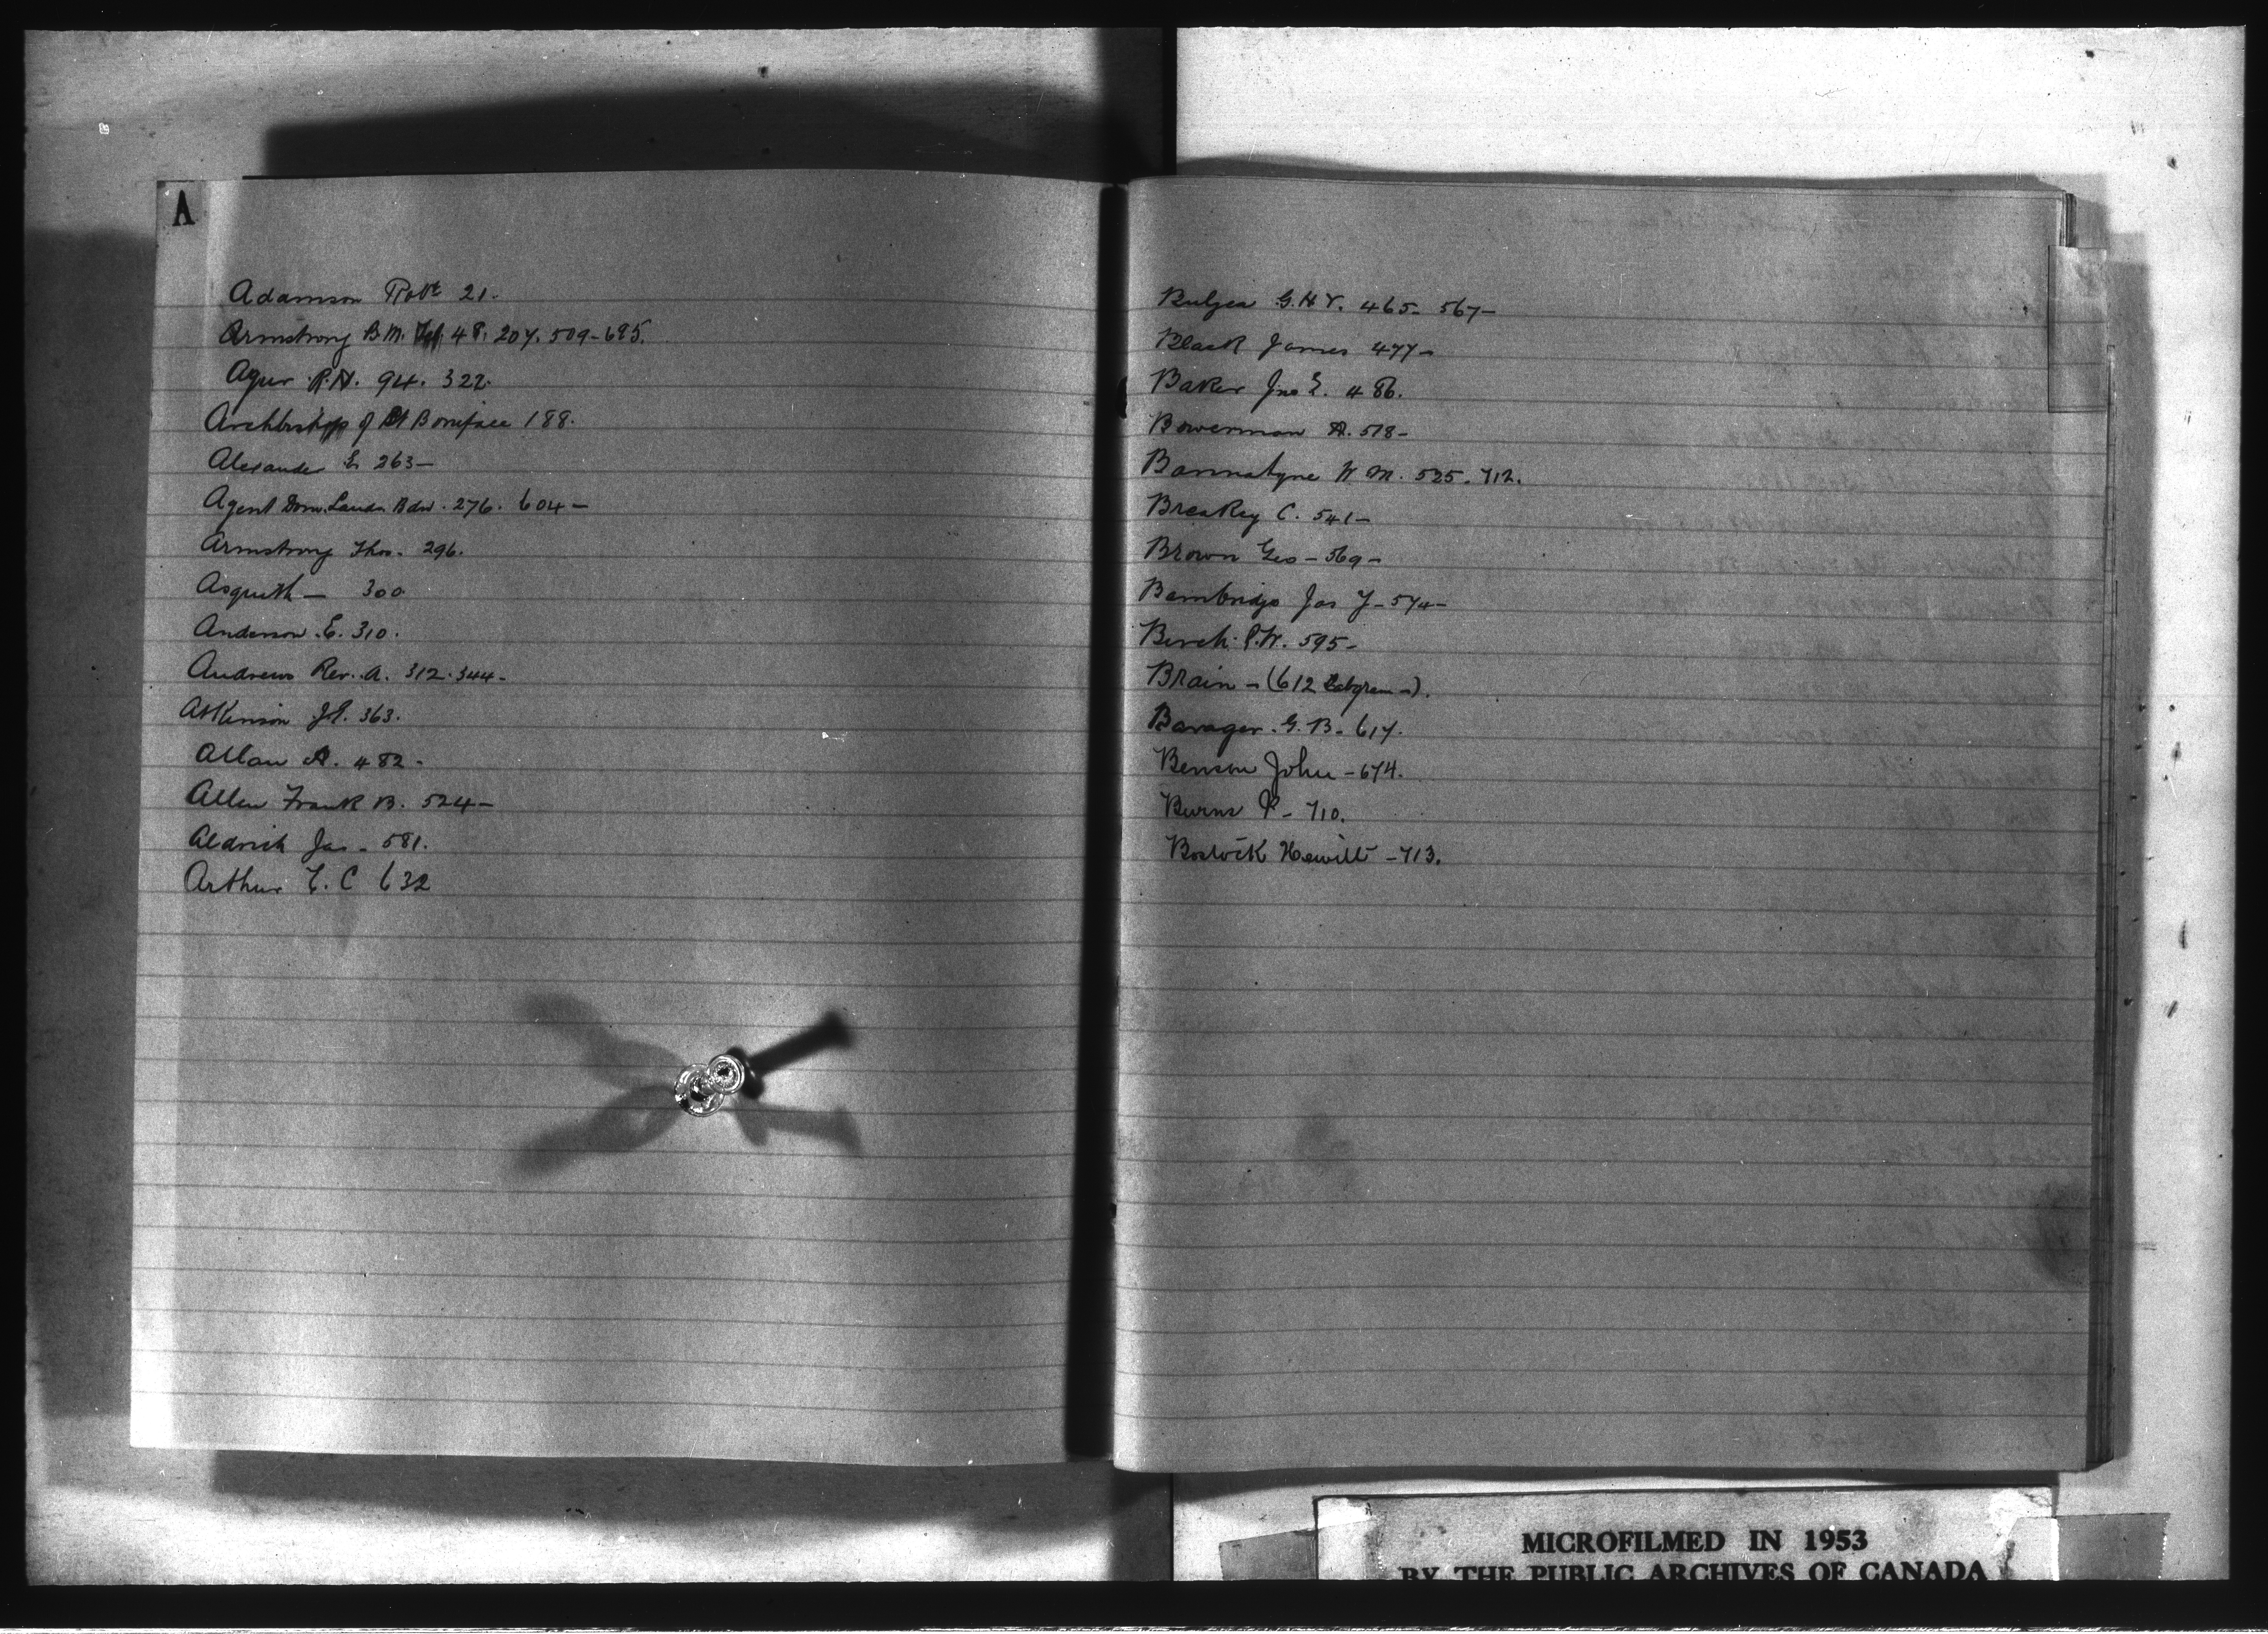 A
Adamson Robt 21.
Armstrong B.M. 48. 207. 509-695.
Agur R.A. 94. 322.
Archbishop of St Boniface 188.
Alexander E 263-
Agent Dom. Lands Bdn. 276. 604-
Armstrong Thos. 296.
Asquith - 300
Anderson E. 310.
Andrews Rev. A. 312. 344-
Atkinson J.P. 363.
Allan A. 482-
Allen Frank B. 524-
Aldrich Jas - 581.
Arthur E. C 632
Bulyea G.H.V. 465- 567-
Black James 477-
Baker Jno E. 486.
Bowerman A. 518-
Bannatyne W M. 525. 712.
Breakey C. 541-
Brown Geo - 569-
Bambridge Jas J - 574-
Birch P.W. 595-
Brain - (612 telegram -).
Barager G.B. 617.
Benson John - 674.
Burns P - 710.
Bostock Hewitt - 713.
MICROFILMED IN 1953
BY THE PUBLIC ARCHIVES OF CANADA